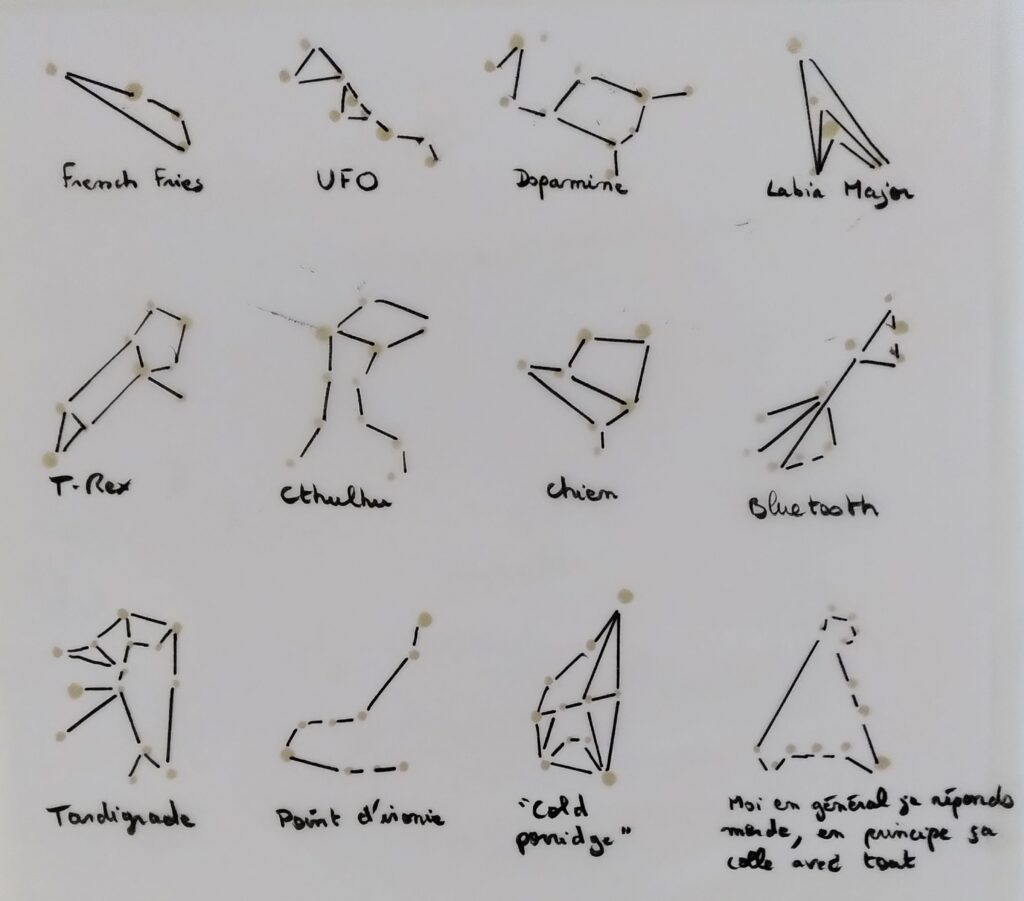 French Fries
UFO
Dopamine
Labia Major
T-Rex
Cthulhu
chien
Bluetooth
Tardigrade
Point d'ironie
"Cold
porridge"
Moi en général je réponds
merde, en principe ça
colle avec tout